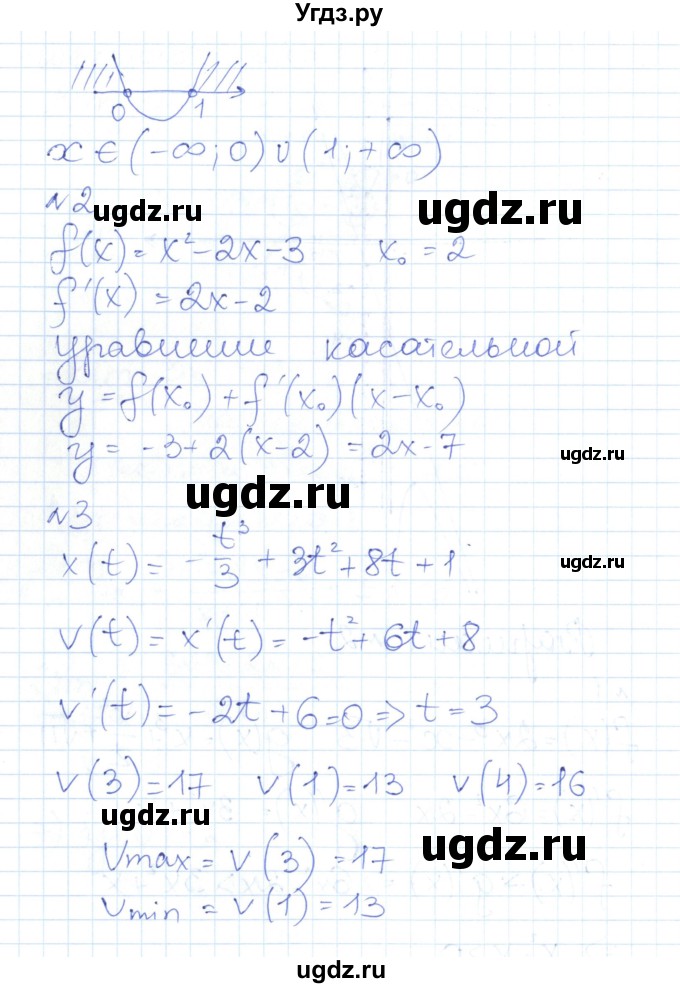 Угдз.ру
0 1
x ∈ (-∞; 0) ∪ (1; +∞)
№2
ugdz.ru ugdz.ru
f(x) = x² - 2x - 3 x₀ = 2
f'(x) = 2x - 2
уравнение касательной
y = f(x₀) + f'(x₀)(x - x₀)
y = -3 + 2(x - 2) = 2x - 7
ugdz.ru
ugdz.ru
№3
x(t) = -t³/3 + 3t² + 8t + 1
ugdz.ru
v(t) = x'(t) = -t² + 6t + 8
v'(t) = -2t + 6 = 0 => t = 3
v(3) = 17 v(1) = 13 v(4) = 16
ugdz.ru
Vmax = v(3) = 17
ugdz.ru
Vmin = v(1) = 13
ugdz.ru